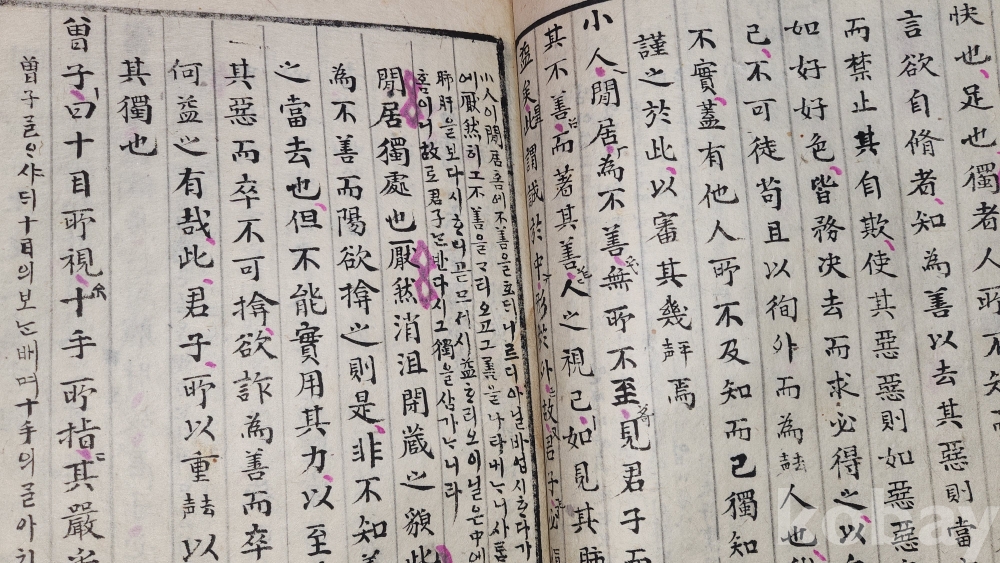 快也足也獨者人所不知而
言欲自脩者知為善以去其惡則當
而禁止其自欺使其惡惡則如惡惡
如好好色皆務決去而求必得之以
己不可徒苟且以徇外而為去声人也
不實蓋有他人所不及知而己獨知
謹之於此以審其幾平声焉
小人閒居為不善無所不至見君子而
其不善而著其善人之視己如見其肺
益矣此謂誠於中形於外故君子必
小人이閒居홈에不善을호디니르디아닐바업시ᄒᆞ다가
에厭然히그不善을ᄀᆞ리오고그善을나타내ᄂᆞ니사ᄅᆞᆷ
肺肝을보다시ᄒᆞ니곧므서시益ᄒᆞ리오이닐온中에
홈이니故로君子ᄂᆞᆫ반다시그獨을삼가ᄂᆞ니라
閒居獨處也厭然消沮閉藏之貌此
為不善而陽欲揜之則是非不知善
之當去也但不能實用其力以至
其惡而卒不可揜欲詐為善而卒
何益之有哉此君子所以重去声以
其獨也
曾子曰十目所視十手所指其嚴乎
曾子ᄀᆞᆯᄋᆞ샤ᄃᆡ十目의보ᄂᆞᆫ배며十手의ᄀᆞᄅᆞ치
kobay